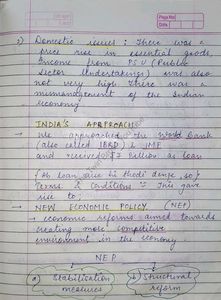 Page No.
Date
3) Domestic issues : There was a
price rise in essential goods.
Income from PSU (Public
Sector Undertakings) was also
not very high. There was a
mismanagement of the Indian
economy
INDIA'S APPROACH
→ We approached the World Bank
(also called IBRD) & IMF
and received $7 billion as loan
(Ab loan aise hi thodi denge, so)
Terms & Conditions :- This gave
rise to;
→ NEW ECONOMIC POLICY (NEP)
→ economic reforms aimed towards
creating more competitive
environment in the economy.
NEP
a) Stabilisation measures
b) Structural reform